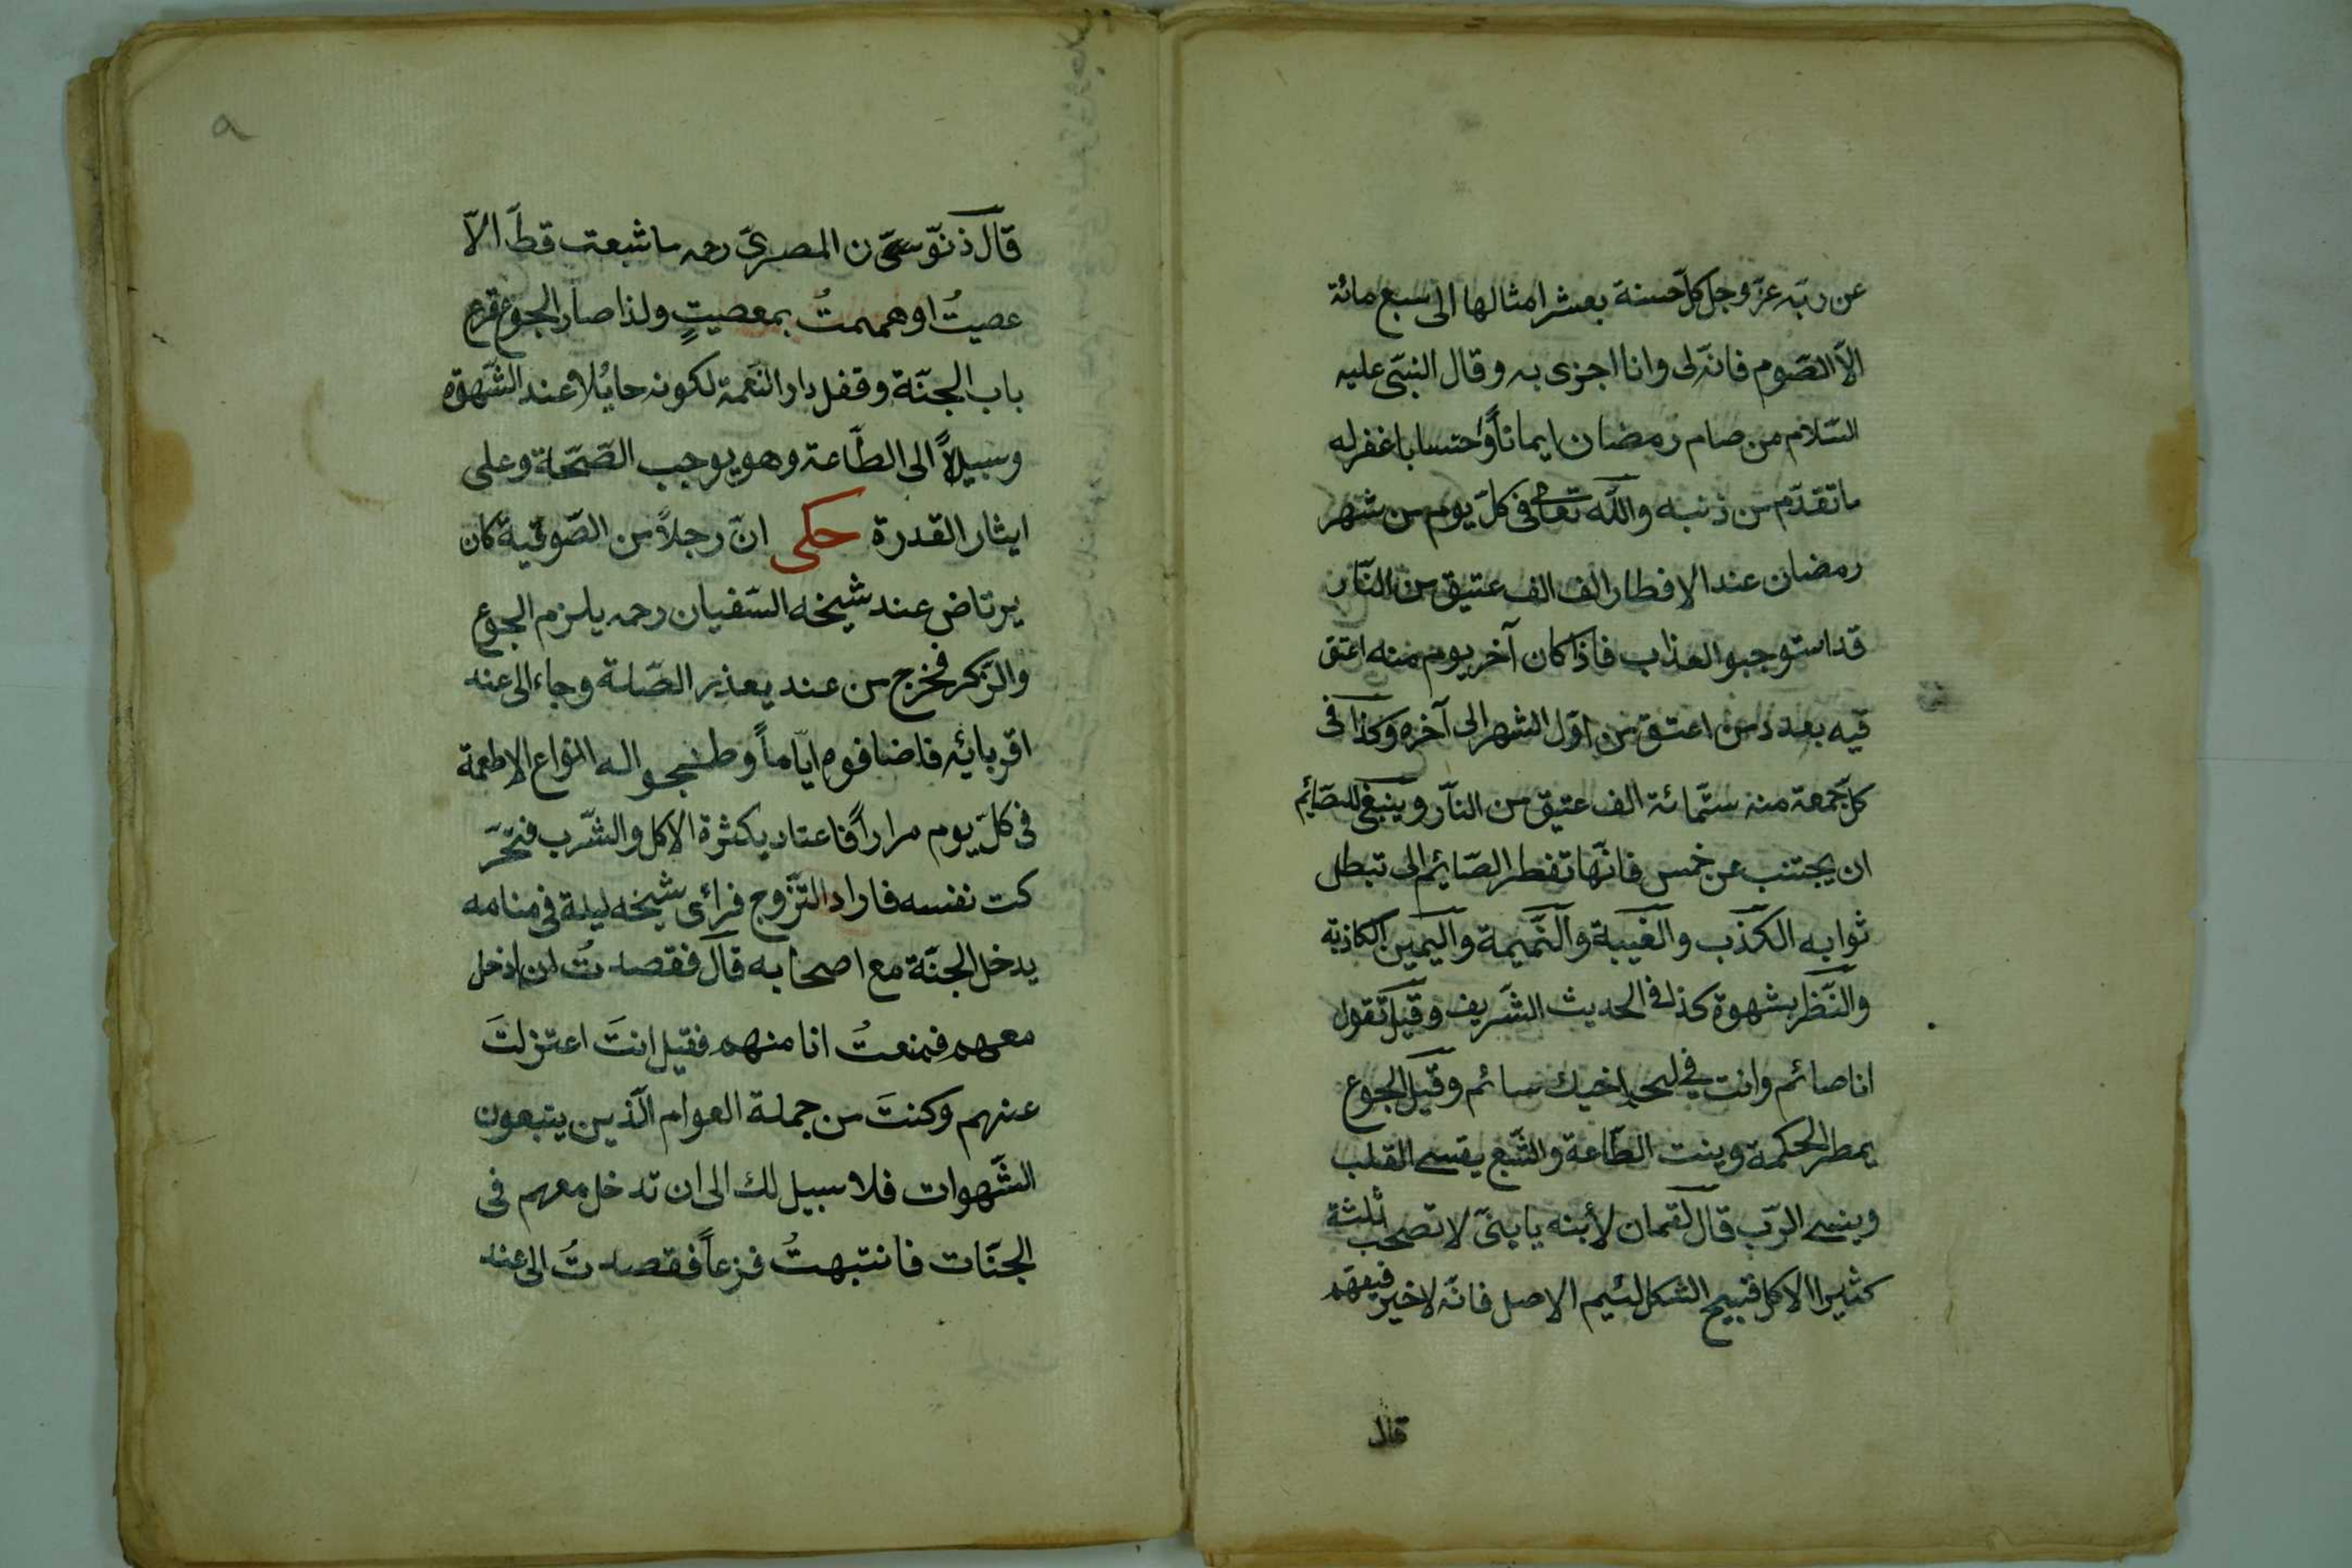 عن ربّه عزّ وجل كلّ حسنة بعشر امثالها الى سبع مائة
الّا الصّوم فانّه لى وانا اجزى به وقال النبّى عليه
السّلام من صام رمضان ايماناً واحتسابا غفر له
ما تقدّم من ذنبه والله تعالى فى كلّ يوم من شهر
رمضان عند الافطار الف الف عتيق من النّار
قد استوجبو العذاب فاذا كان آخر يوم منه اعتق
فيه بعدد من اعتق من اوّل الشهر الى آخره وكذا فى
كلّ جمعة منه ستّمائة الف عتيق من النّار وينبغى للصّائم
ان يجتنب عن خمس فانّها تفطر الصّائم الى تبطل
ثوابه الكذب والغيبة والنّميمة واليمين الكاذبة
والنّظر بشهوة كذا فى الحديث الشّريف وقيل تقول
انا صائم وانت فى لحم اخيك سائم وقيل الجوع
يمطر الحكمة وينت الطّاعة والشّبع يقسى القلب
وينسى الرّب قال لقمان لأبنه يا بنىّ لا تصحب ثلثة
كثيرا الاكل قبيح الشكل لئيم الاصل فانّه لا خير فيهم
قال
٩
قال ذنّو ن المصرىّ رحمه ما شبعت قطّ الّا
عصيتُ او هممتُ بمعصيتٍ ولذا صار الجوع قرع
باب الجنّة وقفل دار النّعمة لكونه حايُلا عند الشّهوة
وسبيلاً الى الطّاعة وهو يوجب الصّحّة وعلى
ايثار القدرة حكى انّ رجلاً من الصّوفية كان
يرتاض عند شيخه السّفيان رحمه يلزم الجوع
والزّكر فخرج من عند يعذر الصّلة وجاء الى عند
اقربائه فاضافوه ايّاماً وطبجوا له انواع الاطعمة
فى كلّ يوم مراراً فاعتاد بكثرة الاكل والشّرب فتحّر
كت نفسه فاراد التزّوج فرائ شيخه ليلة فى منامه
يدخل الجنّة مع اصحابه قال فقصدتُ ان ادخل
معهم فمنعتُ انا منهم فقيل انتَ اعتزلتَ
عنهم وكنتَ من جملة العوام الّذين يتبعون
الشّهوات فلا سبيل لك الى ان تدخل معهم فى
الجنّات فانتبهتُ فزعاً فقصدتُ الى عند